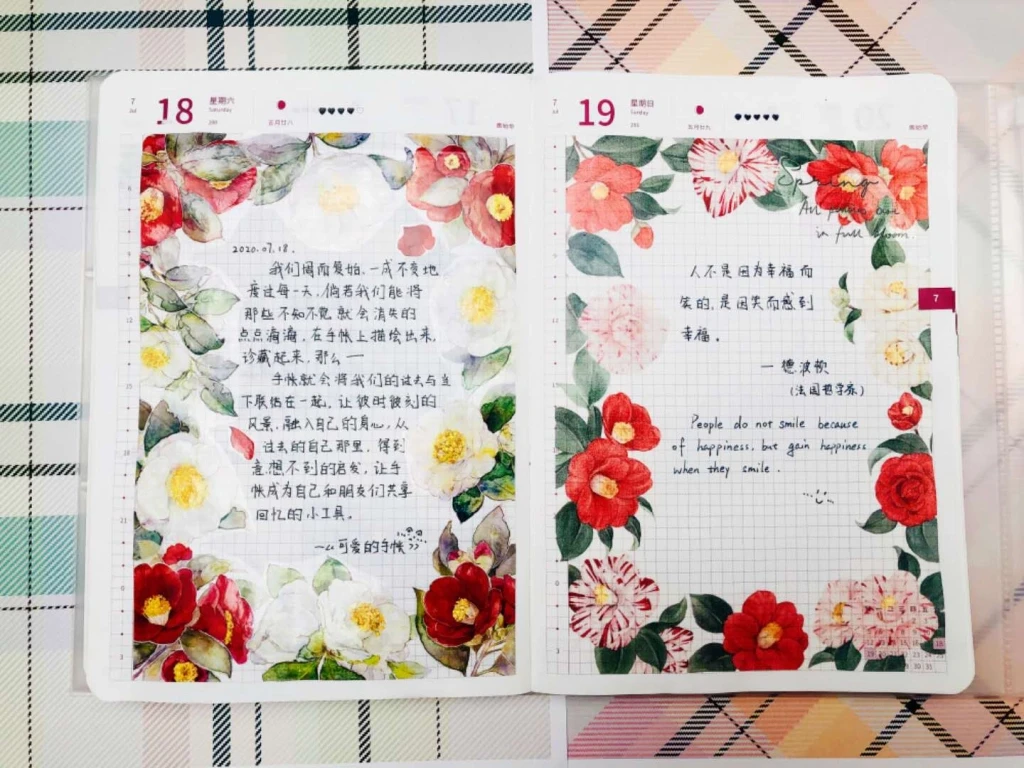 7
Jul
18
星期六
Saturday
200
五月廿八
2020.07.18.
我们周而复始、一成不变地
度过每一天，倘若我们能将
那些不知不觉就会消失的
点点滴滴，在手帐上描绘出来，
珍藏起来，那么——
手帐就会将我们的过去与当
下联结在一起，让彼时彼刻的
风景，融入自己的身心，从
过去的自己那里，得到
意想不到的启发，让手
帐成为自己和朋友们共享
回忆的小工具。
—《可爱的手帐》
7
Jul
19
星期日
Sunday
201
五月廿九
Spring
in full bloom.
人不是因为幸福而
笑的，是因笑而感到
幸福。
— 德波顿
（法国哲学家）
People do not smile because
of happiness, but gain happiness
when they smile.
7